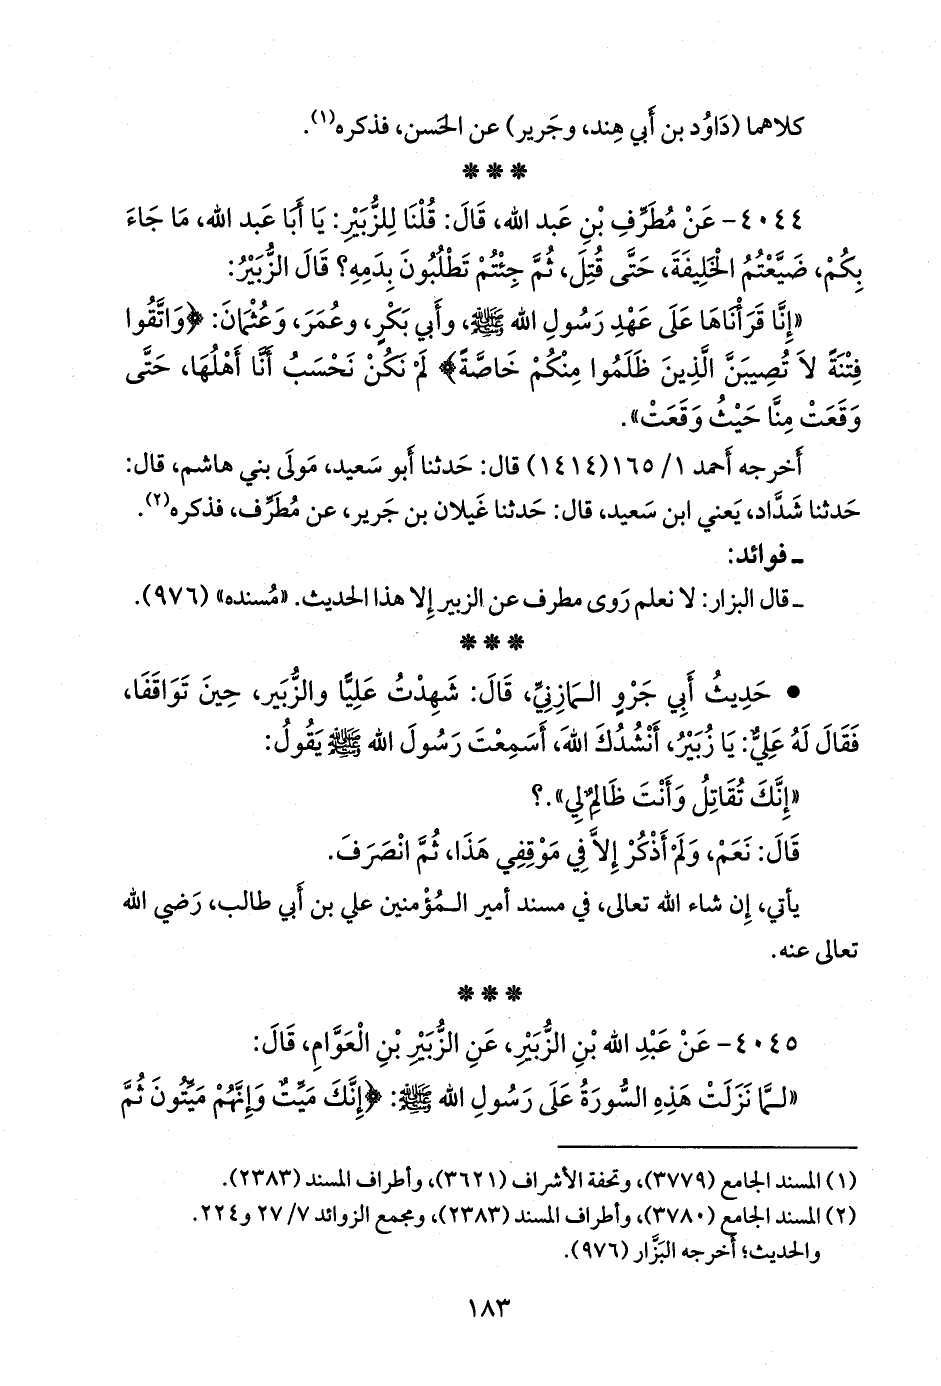 كلاهما (دَاوُد بن أَبي هِند، وجَرير) عن الحَسن، فذكره(١).
* * *
٤٠٤٤- عَنْ مُطَرِّفِ بْنِ عَبد الله، قَالَ: قُلْنَا لِلزُّبَيْرِ: يَا أَبَا عَبد الله، مَا جَاءَ
بِكُمْ، ضَيَّعْتُمُ الْخَلِيفَةَ، حَتَّى قُتِلَ، ثُمَّ جِئْتُمْ تَطْلُبُونَ بِدَمِهِ؟ قَالَ الزُّبَيْرُ:
«إِنَّا قَرَأْنَاهَا عَلَى عَهْدِ رَسُولِ الله ﷺ، وأَبي بَكْرٍ، وعُمَرَ، وَعُثْمَانَ: ﴿وَاتَّقُوا
فِتْنَةً لاَ تُصِيبَنَّ الَّذِينَ ظَلَمُوا مِنْكُمْ خَاصَّةً﴾ لَمْ نَكُنْ نَحْسَبُ أَنَّا أَهْلُهَا، حَتَّى
وَقَعَتْ مِنَّا حَيْثُ وَقَعَتْ».
أَخرجه أَحمد ١/ ١٦٥(١٤١٤) قال: حَدثنا أَبو سَعيد، مَولَى بني هاشم، قال:
حَدثنا شَدَّاد، يَعني ابن سَعيد، قال: حَدثنا غَيلان بن جَرير، عن مُطَرِّف، فذكره(٢).
ـ فوائد:
ـ قال البزار: لا نعلم رَوى مطرف عن الزبير إِلا هذا الحديث. «مُسنده» (٩٧٦).
* * *
● حَدِيثُ أَبِي جَرْوٍ المَازِنِيِّ، قَالَ: شَهِدْتُ عَلِيًّا والزُّبَير، حِينَ تَوَاقَفَا،
فَقَالَ لَهُ عَلِيٌّ: يَا زُبَيْرُ، أَنْشُدُكَ اللهَ، أَسَمِعْتَ رَسُولَ الله ﷺ يَقُولُ:
«إِنَّكَ تُقَاتِلُ وَأَنْتَ ظَالِمٌ لِي».؟
قَالَ: نَعَمْ، وَلَمْ أَذْكُرْ إِلاَّ فِي مَوْقِفِي هَذَا، ثُمَّ انْصَرَفَ.
يأتي، إِن شاء الله تعالى، في مسند أمير المُؤْمنين علي بن أَبي طالب، رَضي الله
تعالى عنه.
* * *
٤٠٤٥- عَنْ عَبْدِ الله بْنِ الزُّبَيْرِ، عَنِ الزُّبَيْرِ بْنِ الْعَوَّامِ، قَالَ:
«لمَّا نَزَلَتْ هَذِهِ السُّورَةُ عَلَى رَسُولِ الله ﷺ: ﴿إِنَّكَ مَيِّتٌ وَإِنَّهُمْ مَيِّتُونَ ثُمَّ
(١) المسند الجامع (٣٧٧٩)، وتحفة الأشراف (٣٦٢١)، وأطراف المسند (٢٣٨٣).
(٢) المسند الجامع (٣٧٨٠)، وأطراف المسند (٢٣٨٣)، ومجمع الزوائد ٧/ ٢٧ و٢٢٤.
والحديث؛ أخرجه البَزَّار (٩٧٦).
١٨٣